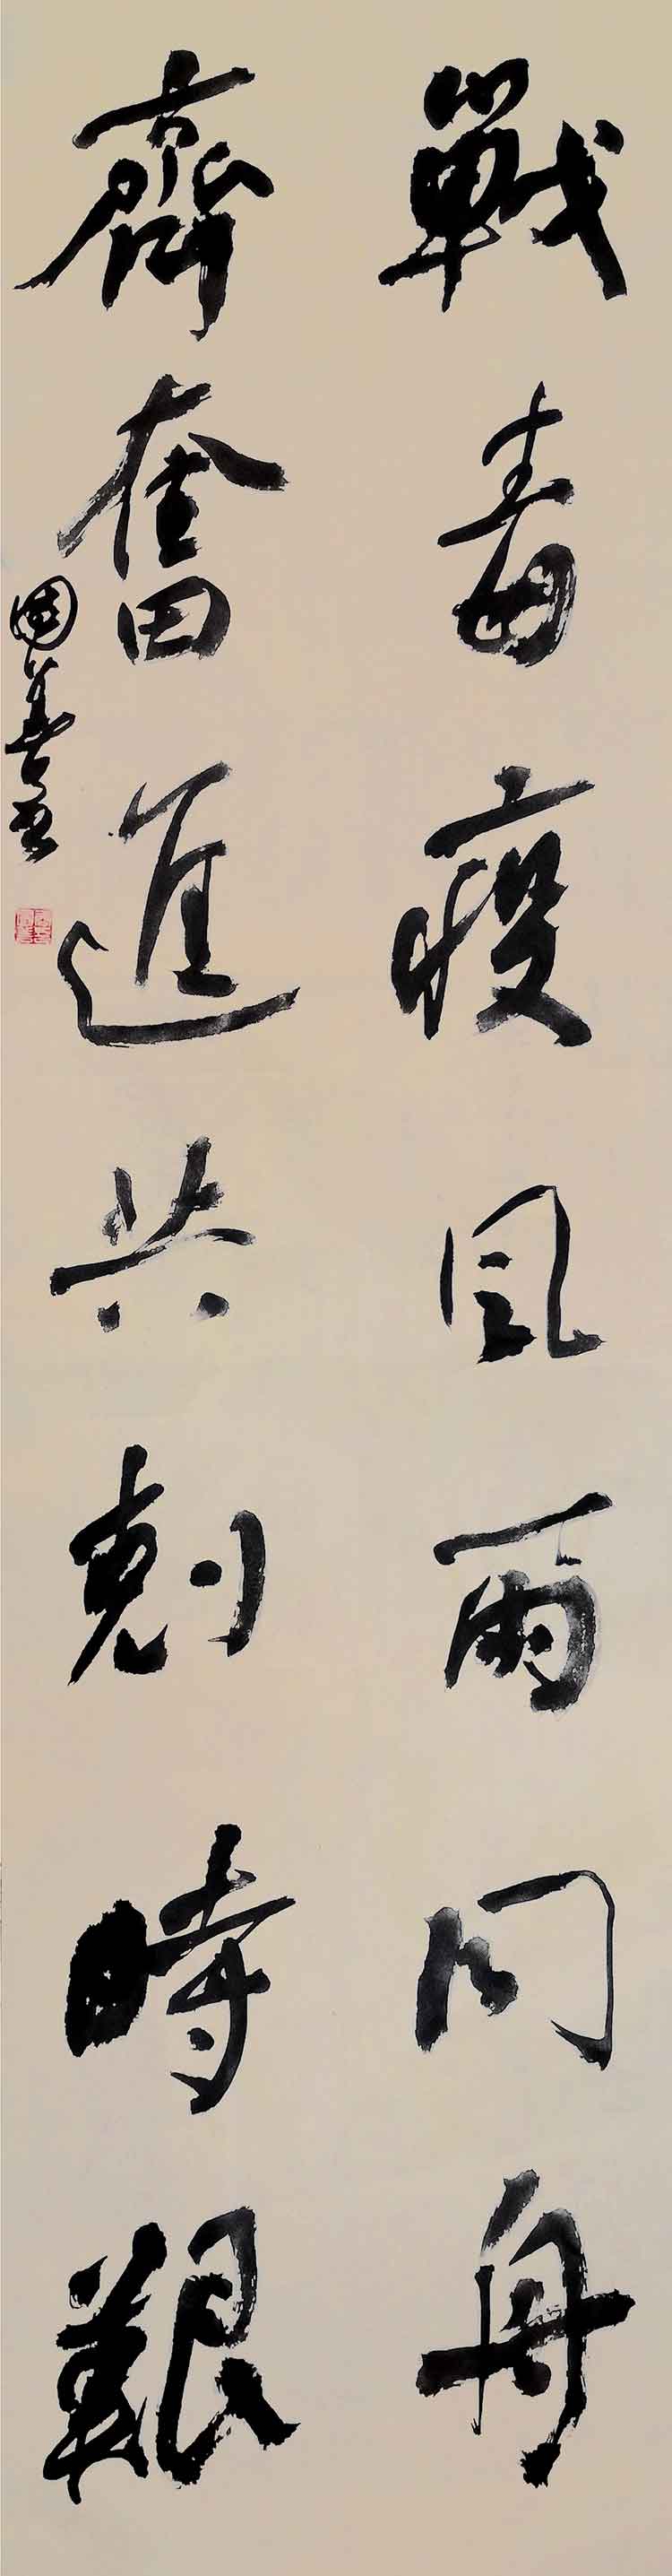 戰毒疫風雨同舟
齊奮進共剋時艱
國善書